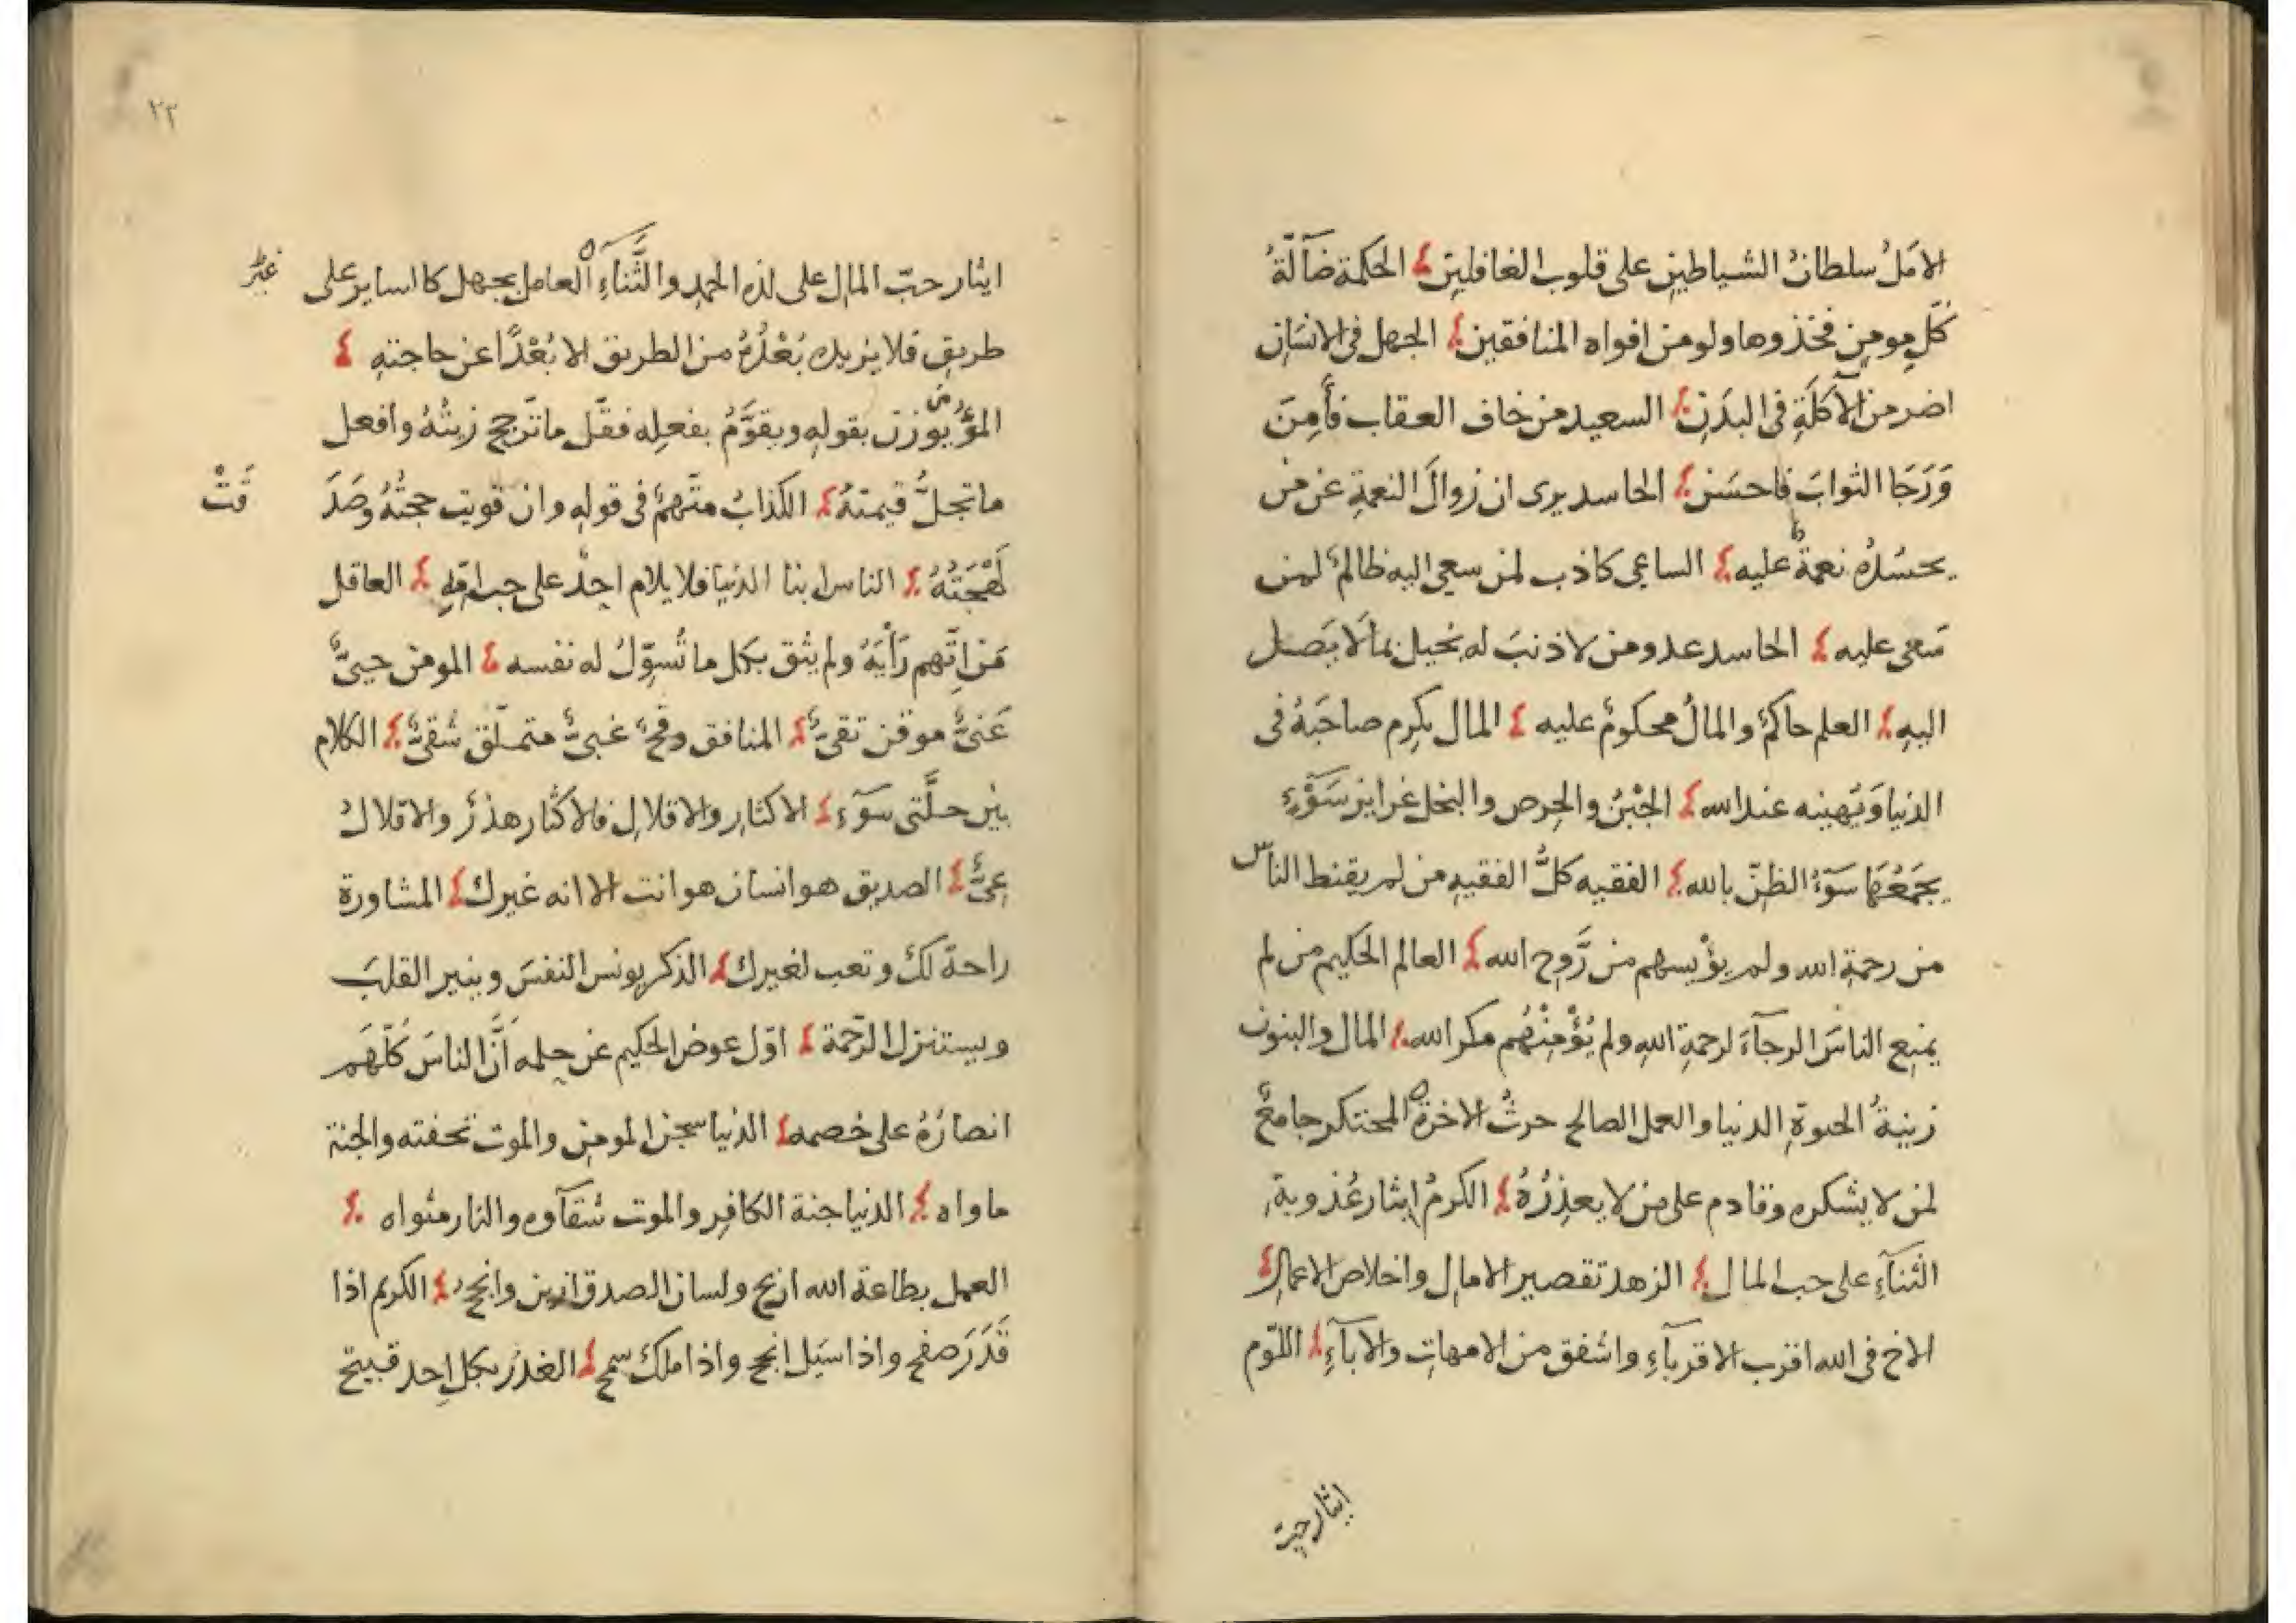 الامَلُ سلطانُ الشياطينِ على قلوب الغافلين الحكمة ضآلّةُ
كلّ مومنٍ فخذوها ولو من افواه المنافقين الجهل فى الانسَانِ
اضر من الآكلَةِ فى البدَنِ السعيد من خاف العقاب فأمِنَ
وَرَجَا الثوابَ فاحسَن الحاسد يرى ان زوالَ النعمةِ عن من
يحسُدُهُ نعمةٌ عليه الساعى كاذب لمن سعى اليه ظالمٌ لمن
سَعى عليه الحاسد عدو من لا ذنبَ له بخيل بمالَا يَصل
اليهِ العلم حاكمٌ والمالُ محكومٌ عليه المال يكرِم صاحبَهُ فى
الدنيا وَيُهينه عند الله الجُبْنُ والحِرص والبخل غرايز سَوْءٍ
يجمَعُهَا سَوْءُ الظنّ بالله الفقيه كلُّ الفقيهِ من لم يقنط الناس
من رحمةِ الله ولم يؤيسهم من رَّوحِ الله العالم الحكيم من لم
يمنع الناسَ الرجآءَ لرحمةِ اللهِ ولم يُؤْمِنْهُم مكر الله المال والبنون
زينةُ الحيوةِ الدنيا والعمل الصالح حرثُ الاخرة المحتكر جامعٌ
لمن لا يشكره وقادم على من لا يعذِرُهُ الكرمُ ايثار عُذوبةِ
الثنآءِ على حب المال الزهد تقصير الامال واخلاص الاعمال
الاخ فى الله اقرب الاقربآءِ واشفق من الامهاتِ والابآءِ اللّوم
ايثار حبّ
٢٢
ايثار حبّ المال على لذه الحمدِ والثَّناءِ العامل بجهل كالساير على غير
طريقٍ فلا يزيده بُعْدُهُ من الطريق الا بُعْدًا عن حاجتهِ
المرُؤ يوزن بقولهِ ويقوَّمُ بفعلِه فقل ما تَرجح زينتُهُ وافعل
ما تجلُّ قيمتهُ الكذابُ متّهمٌ فى قولهِ وان قويت حجتُهُ وصَدَ قَتْ
لَهْجَتُهُ الناس ابنا الدنيا فلا يلام احدٌ على حب امّهِ العاقل
مَن اتّهم رَأيَهُ ولم يثق بكل ما تُسوِّلُ له نفسه المومن حيىٌّ
غَنىٌّ موقن تقىٌّ المنافق وقحٌ غبىٌّ متملّق شقىٌّ الكلام
بين خلَّتى سَوْءٍ الاكثار والاقلالِ فالاكثار هذرٌ والاقلالُ
عِىٌّ الصديق هو انسان هو انت الا انه غيرك المشاورة
راحة لكَ وتعب لغيرك الذكر يونس النفسَ وينير القلبَ
ويستنزل الرّحمة اوّل عوض الحكيم عن حِلمه اَنَّ الناسَ كلّهَم
انصارُهُ على خصمه الدنيا سجن المومن والموت تحفته والجنة
ماواه الدنيا جنة الكافِرِ والموت شقآوه والنار مثواه
العمل بطاعة الله اربح ولسان الصدق ازين وانجح الكريم اذا
قَدَرَ صفح واذا سَيل انجح واذا ملك سمح الغدر بكل احد قبيح